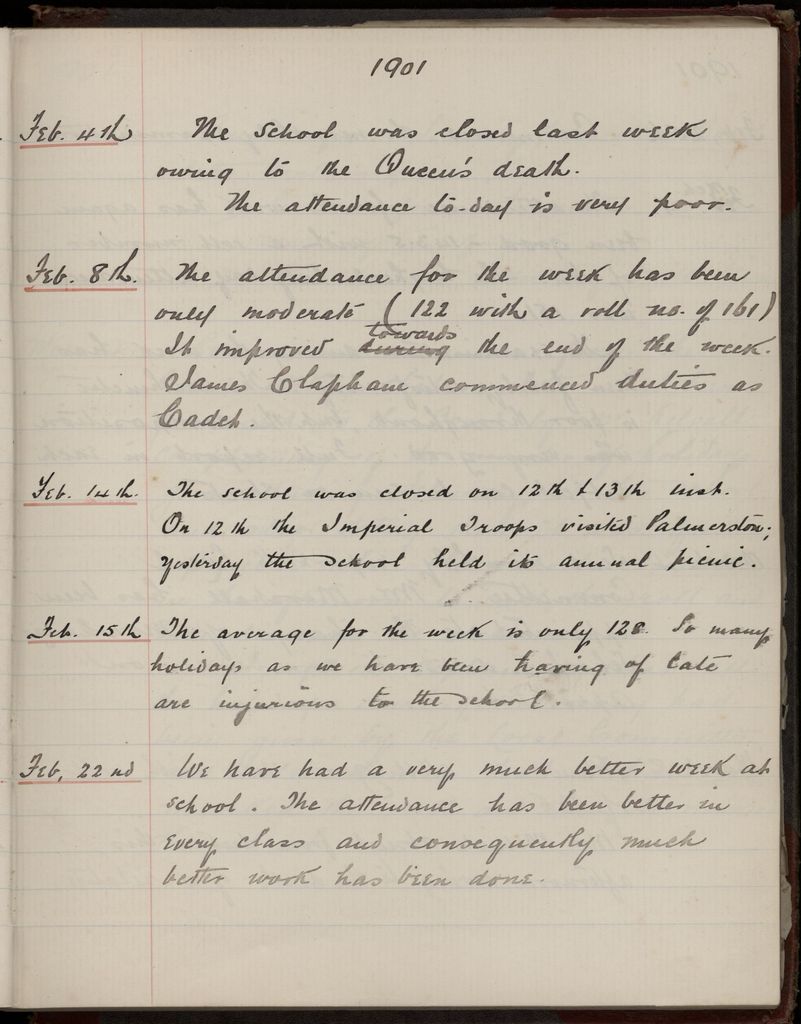 1901
Feb. 4th The School was closed last week
owing to the Queen's death.
The attendance to-day is very poor.
Feb. 8th. The attendance for the week has been
only moderate (122 with a roll no. of 161)
towards
It improved during the end of the week.
James Clapham commenced duties as
Cadet.
Feb. 14th. The school was closed on 12th & 13th inst.
On 12th the Imperial Troops visited Palmerston;
yesterday the School held its annual picnic.
Feb. 15th The average for the week is only 128. So many
holidays as we have been having of late
are injurious to the School.
Feb, 22nd We have had a very much better week at
school. The attendance has been better in
every class and consequently much
better work has been done.